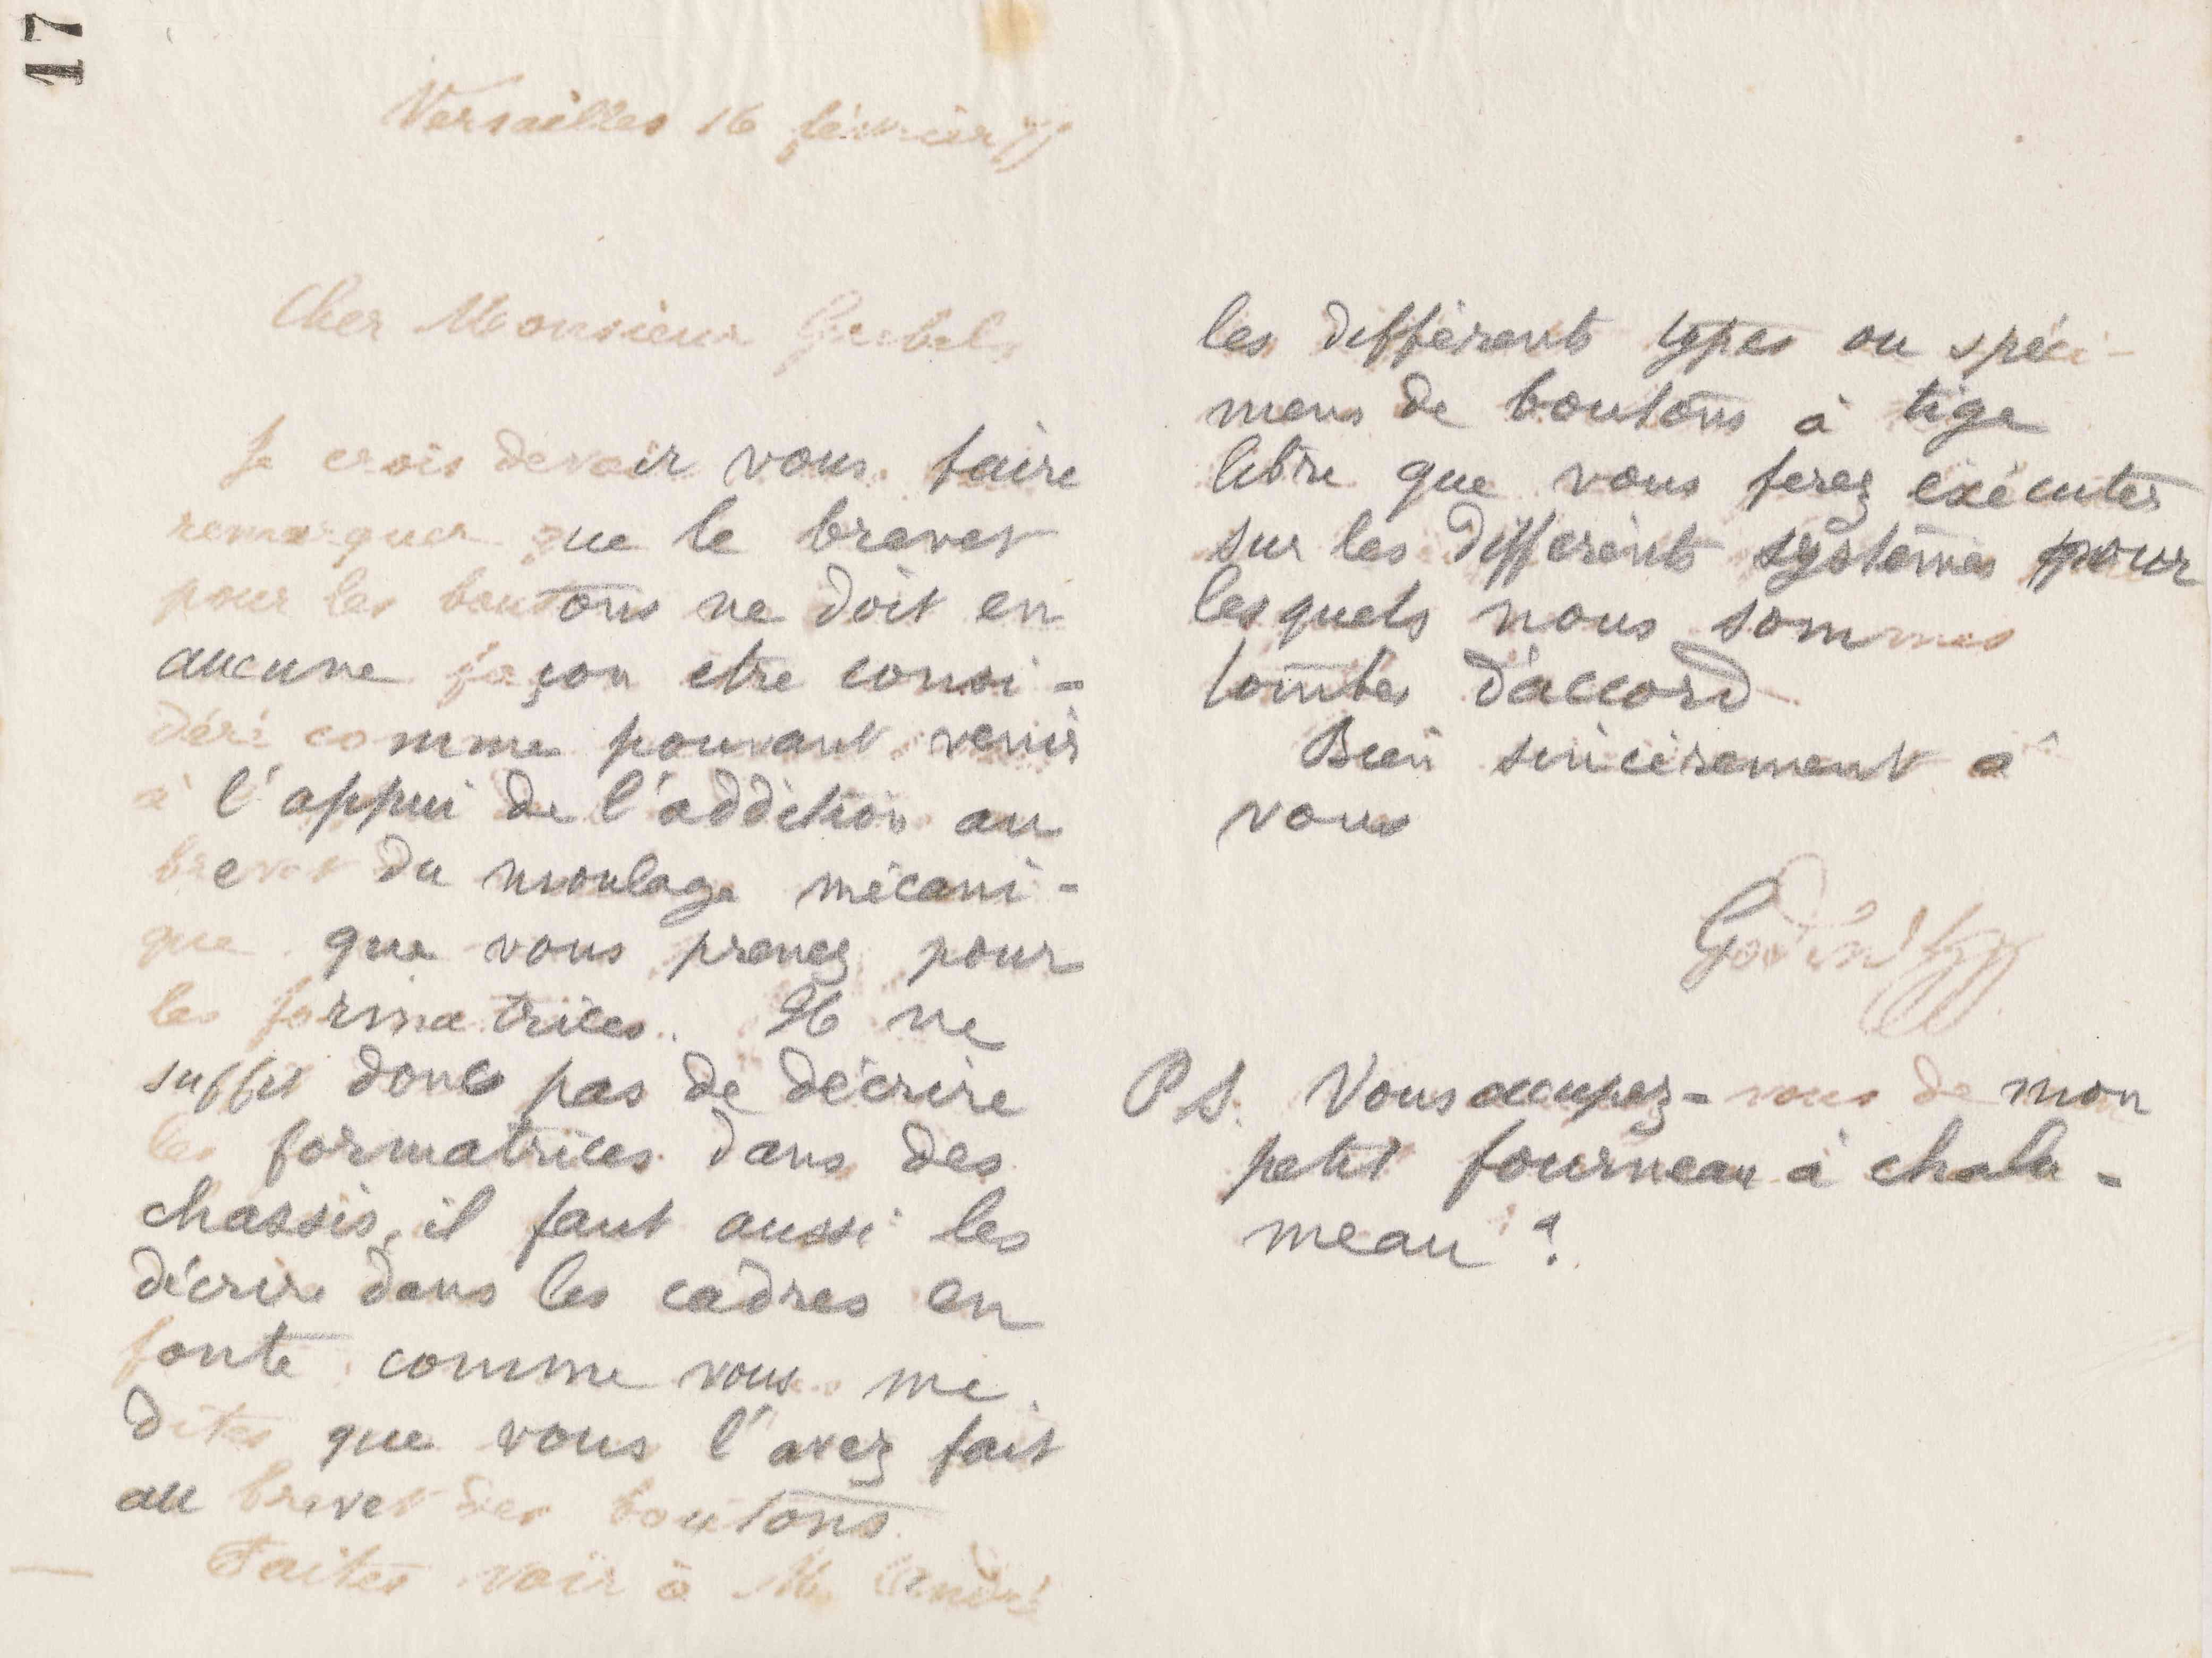 17
Versailles 16 février
Cher Monsieur
Je crois devoir vous faire
remarquer que le brevet
pour les boutons ne doit en
aucune façon etre consi-
déré comme pouvant venir
à l'appui de l'addition au
brevet du moulage mécani-
que que vous prenez pour
les formatrices. Il ne
suffit donc pas de décrire
les formatrices dans des
chassis, il faut aussi les
décrire dans les cadres en
fonte comme vous me
dites que vous l'avez fait
au brevet des boutons
Faites voir à M. André
les différents types ou spéci-
mens de boutons à tige
libre que vous ferez exécuter
sur les différents systèmes pour
lesquels nous sommes
tombés d'accord
Bien sincèrement à
vous
Godin
PS. Vous occupez-vous de mon
petit fourneau à chalu-
meau ?